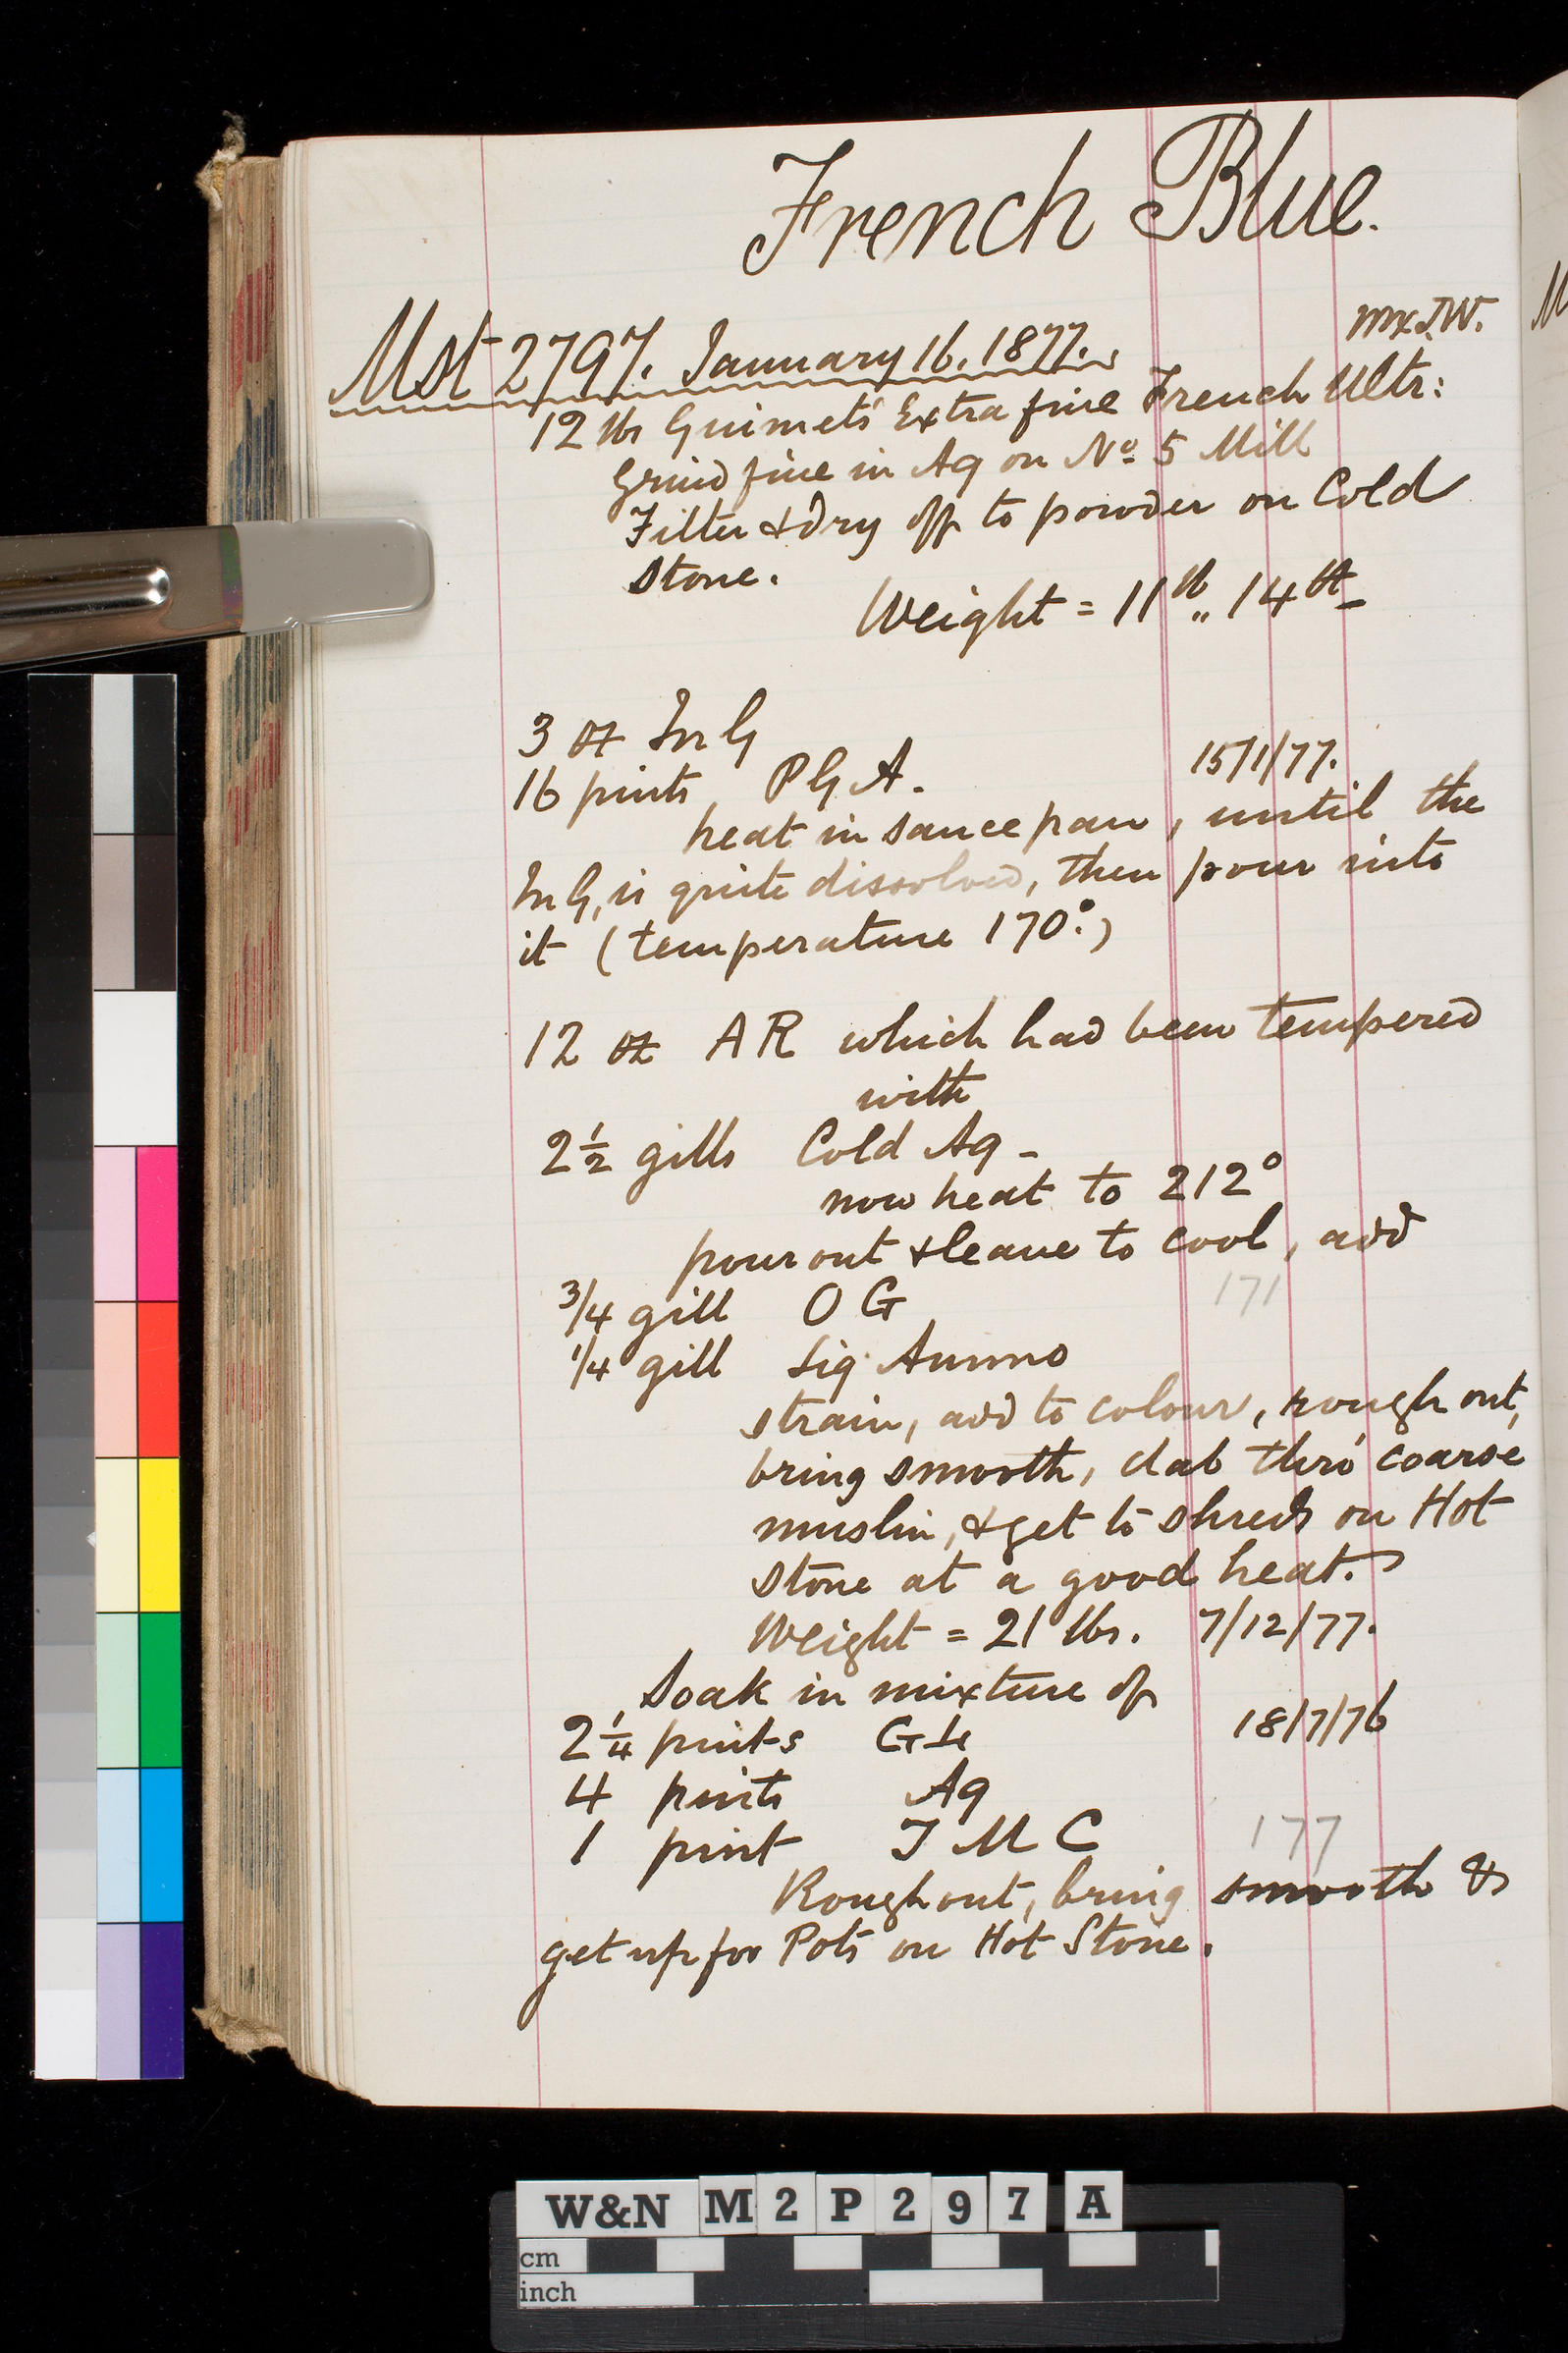 French Blue.
mx.J.W.
Mst 2797. January 16. 1877.
12 lbs Guimet's Extra fine French Ultr:
Grind fine in Aq on No. 5 Mill
Filter & dry off to powder on Cold
Stone.
Weight = 11 lb ,, 14
3 oz In G
16 pints P G A. 15/1/77.
heat in sauce pan, until the
In G, is quite dissolved, then pour into
it (temperature 170°.)
12 oz A R which had been tempered
with
2½ gills Cold Aq -
now heat to 212°
pour out & leave to cool, add
3/4 gill O G 171
1/4 gill Liq. Ammo
strain, add to colour, rough out,
bring smooth, dab thro' coarse
muslin, & get to shreds on Hot
Stone at a good heat.
Weight = 21 lbs. 7/12/77.
Soak in mixture of
2¼ pints G Le 18/7/76
4 pints Aq
1 pint J M C 177
Rough out, bring smooth &
get up for Pots on Hot Stone.
W&N M 2 P 2 9 7 A
cm
inch